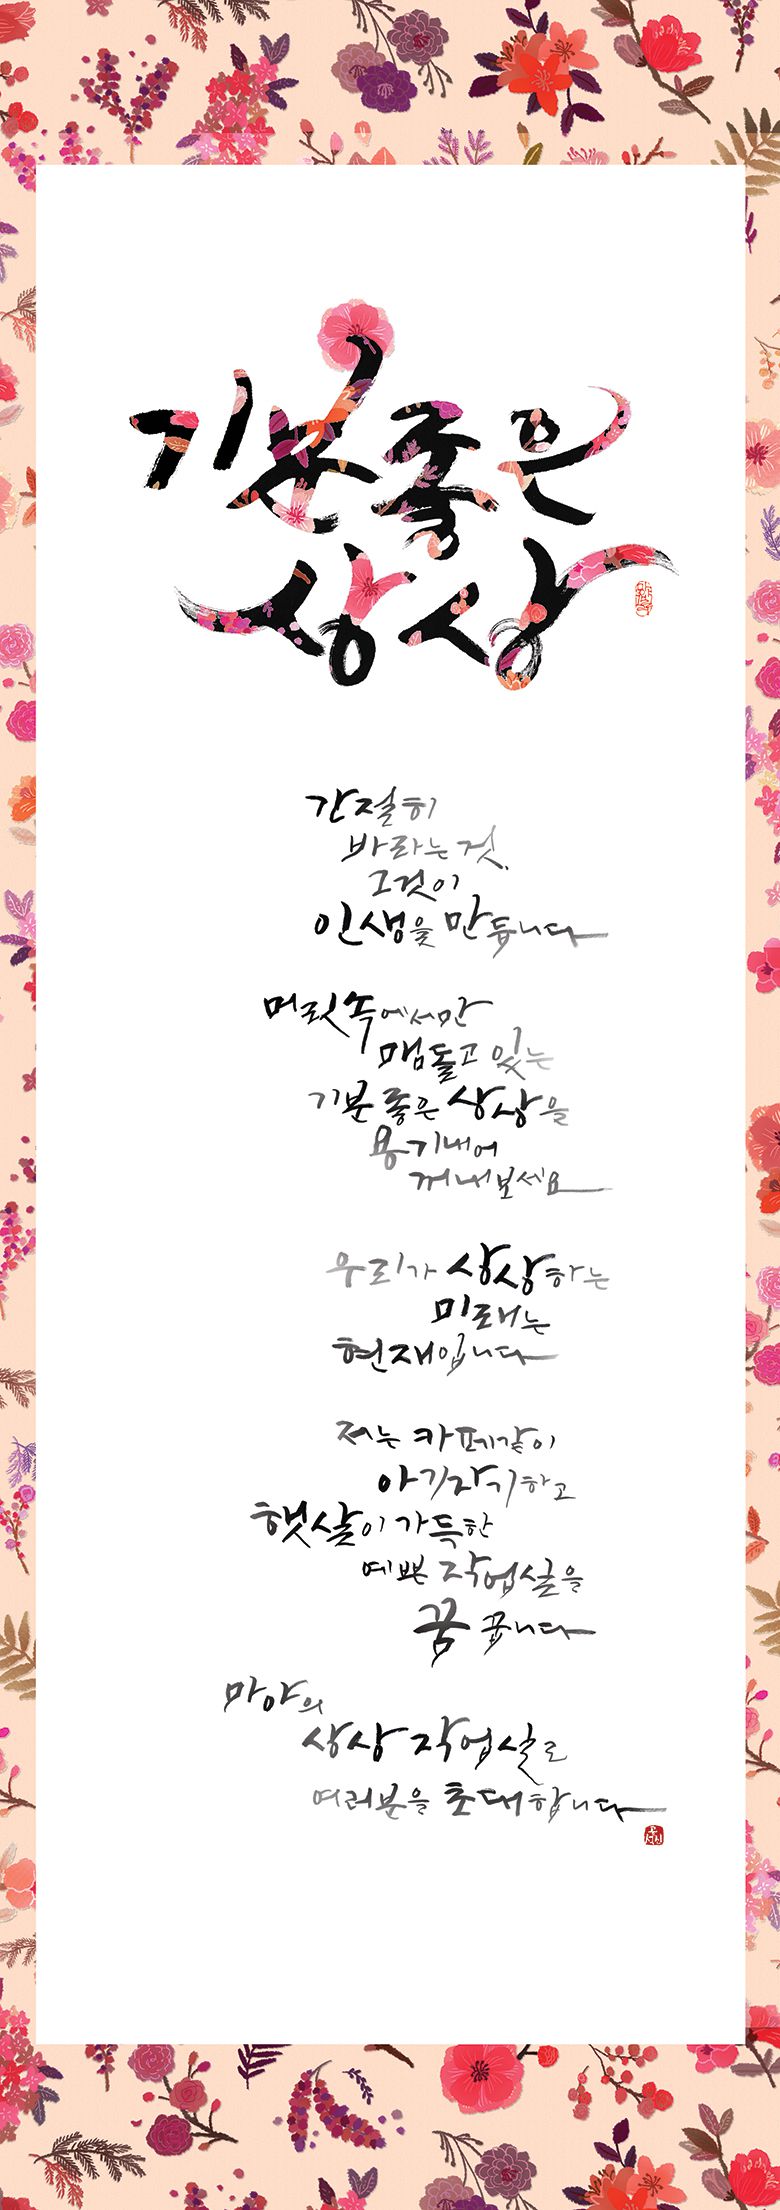 기분좋은
상상
간절히
바라는 것,
그것이
인생을 만듭니다
머릿속에서만
맴돌고 있는
기분 좋은 상상을
용기내어
꺼내보세요
우리가 상상하는
미래는
현재입니다
저는 카페같이
아기자기하고
햇살이 가득한
예쁜 작업실을
꿈 꿉니다
마야의
상상 작업실로
여러분을 초대합니다